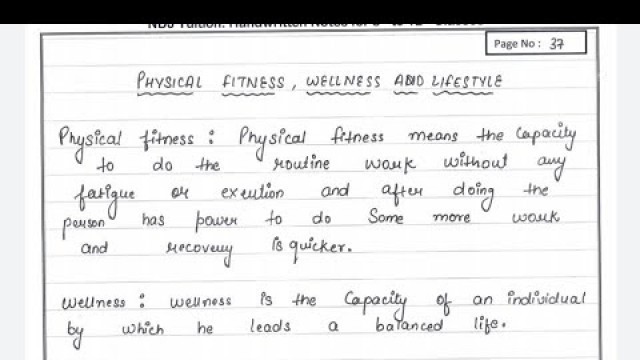 Page No : 37
PHYSICAL FITNESS, WELLNESS AND LIFESTYLE
Physical fitness : Physical fitness means the Capacity
to do the routine work without any
fatigue or exertion and after doing the
person has power to do Some more work
and recovery is quicker.
Wellness : Wellness is the Capacity of an individual
by which he leads a balanced life.